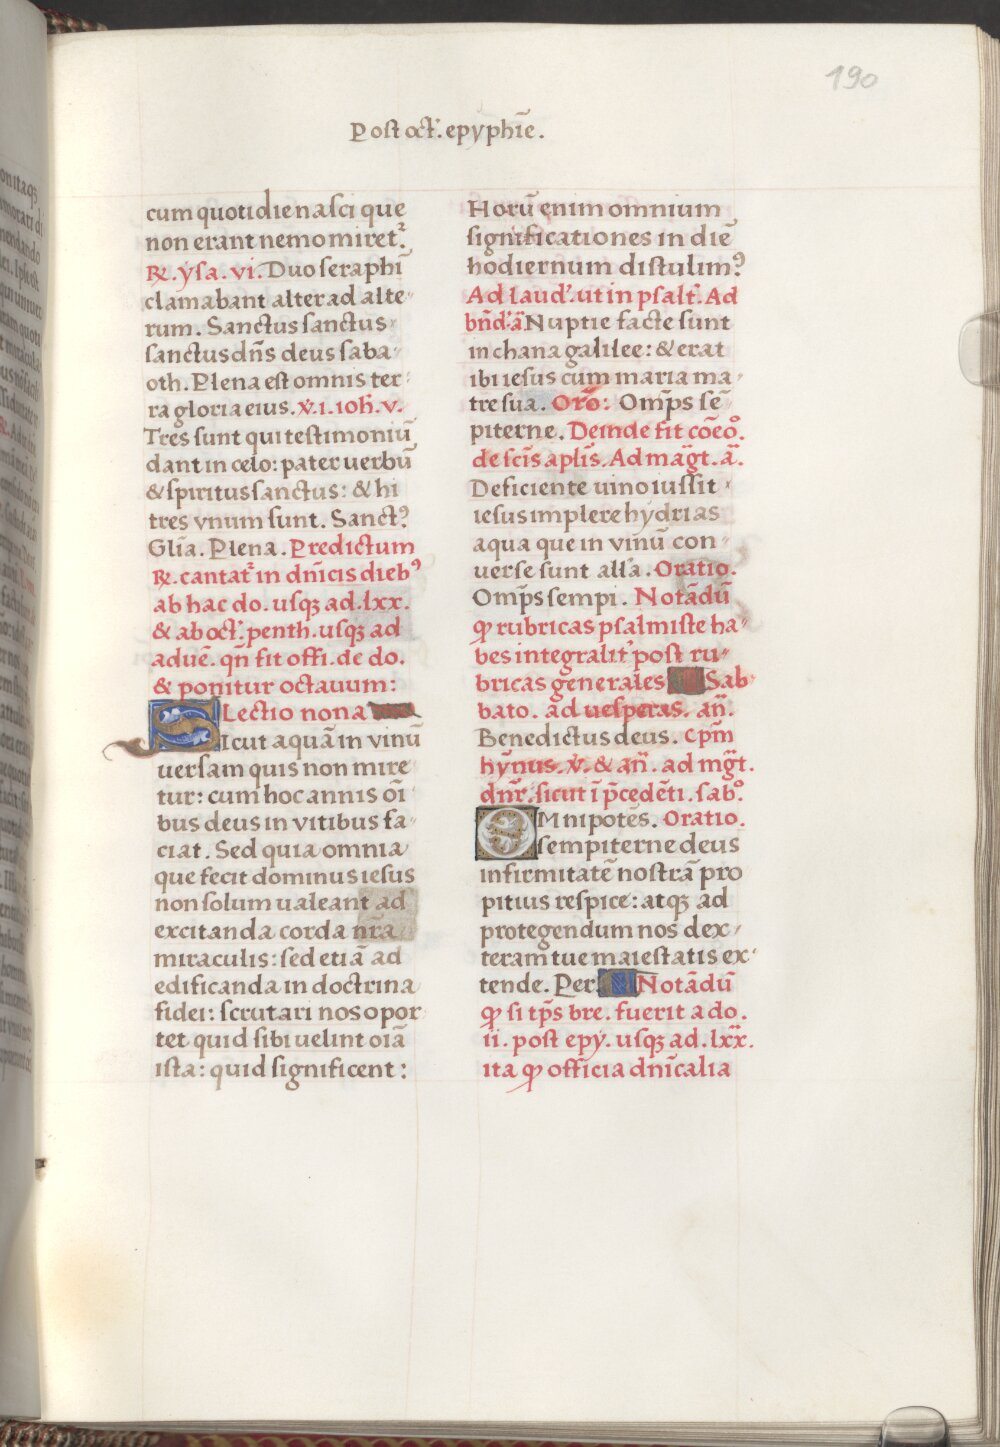 190
Post oct᷑. epyphīe.
cum quotidie nasci que
non erant nemo miret᷑.
℞. ysa. vi. Duo seraphī
clamabant alter ad alte
rum. Sanctus sanctus
sanctus dn̄s deus saba
oth. Plena est omnis ter
ra gloria eius. v̄. i. ioh̄. v.
Tres sunt qui testimoniū
dant in celo: pater uerbū
& spiritus sanctus: & hi
tres vnum sunt. Sanctꝰ
Glīa. Plena. Predictum
℞. cantat᷑ in dn̄icis diebꝰ
ab hac do. usqꝫ ad. lxx.
& ab oct᷑. penth. usqꝫ ad
aduē. qn̄ fit offi. de do.
& ponitur octauum:
Lectio nona
Sicut aquā in vinū
uersam quis non mire
tur: cum hoc annis oī
bus deus in vitibus fa
ciat. Sed quia omnia
que fecit dominus iesus
non solum ualeant ad
excitanda corda nr̄a
miraculis: sed etiā ad
edificanda in doctrina
fidei: scrutari nos opor
tet quid sibi uelint oīa
ista: quid significent:
Horū enim omnium
significationes in diē
hodiernum distulimꝰ
Ad laud᷑. ut in psalt᷑. Ad
bn̄d᷑. ā Nuptie facte sunt
in chana galilee: & erat
ibi iesus cum maria ma
tre sua. Orō: Omp̄s se
piterne. Deinde fit cōeō.
de scīs aplīs. Ad māgt. ā.
Deficiente uino iussit
iesus implere hydrias
aqua que in vinū con
uerse sunt alla. Oratio.
Omp̄s sempi. Notādū
ꝙ rubricas psalmiste ha
bes integralit᷑ post ru
bricas generales Sab
bato. ad uesperas. an̄.
Benedictus deus. cpm̄
hȳnus. v̄. & an̄. ad mḡt.
dnr̄. sicut ī p̄cedēti. sabō.
Omnipotēs. Oratio.
sempiterne deus
infirmitatē nostrā pro
pitius respice: atqꝫ ad
protegendum nos dex
teram tue maiestatis ex
tende. Per. Notādū
ꝙ si tp̄s bre. fuerit a do.
ii. post epy. usqꝫ ad. lxx̄.
ita ꝙ officia dn̄icalia